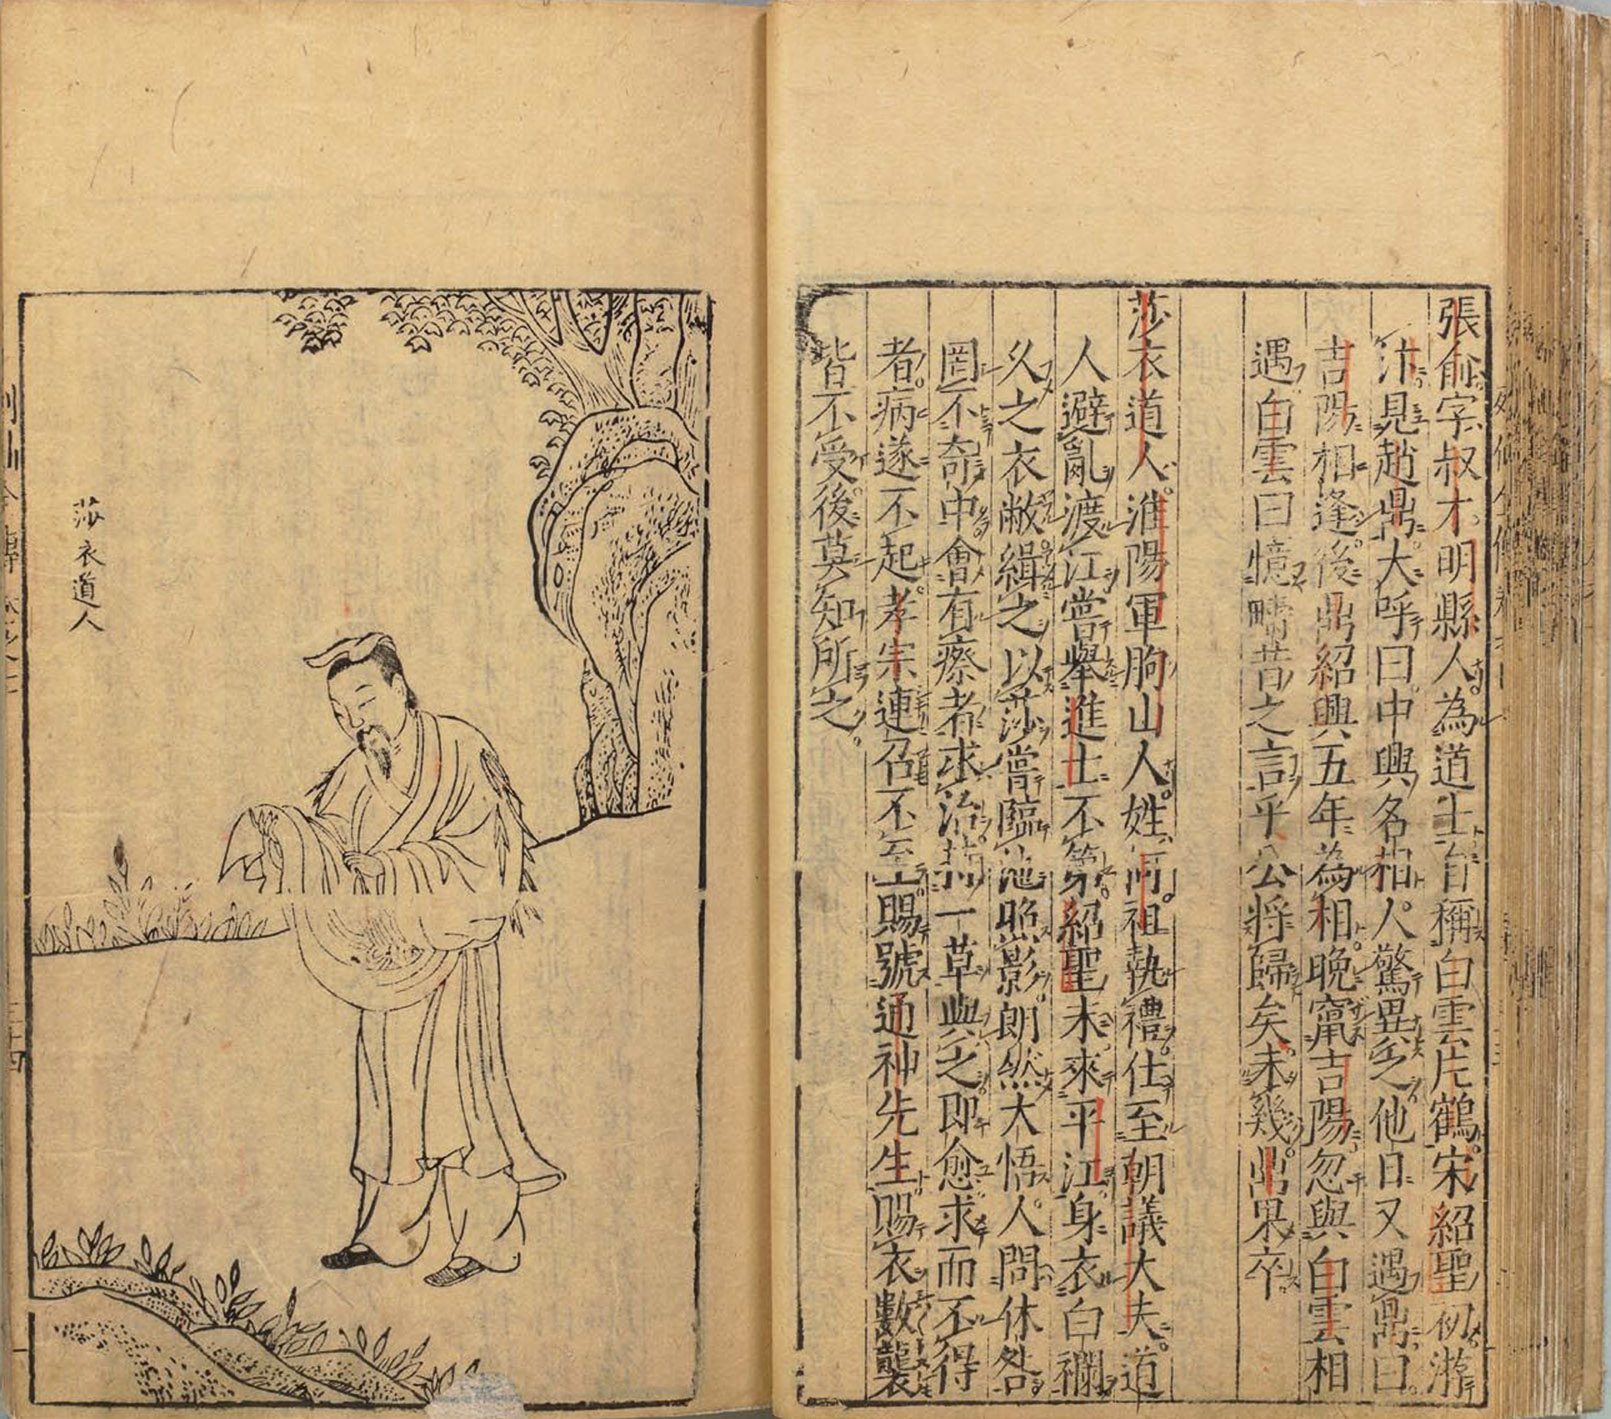 張俞字叔才明縣人為道士自稱白雲片鶴宋紹聖初游
汴見趙鼎大呼曰中興名相人驚異之他日又遇鼎曰
吉陽相逢後鼎紹興五年為相晚竄吉陽忽與白雲相
遇白雲曰憶疇昔之言乎公將歸矣未幾鼎果卒
莎衣道人淮陽軍朐山人姓何祖執禮仕至朝議大夫道
人避亂渡江嘗舉進士不第紹聖末來平江身衣白襴
久之衣敝緝之以莎嘗臨池照影朗然大悟人問休咎
罔不奇中會有瘵者求治持一草與之即愈求而不得
者病遂不起孝宗連召不至賜號通神先生賜衣數襲
皆不受後莫知所之
莎衣道人